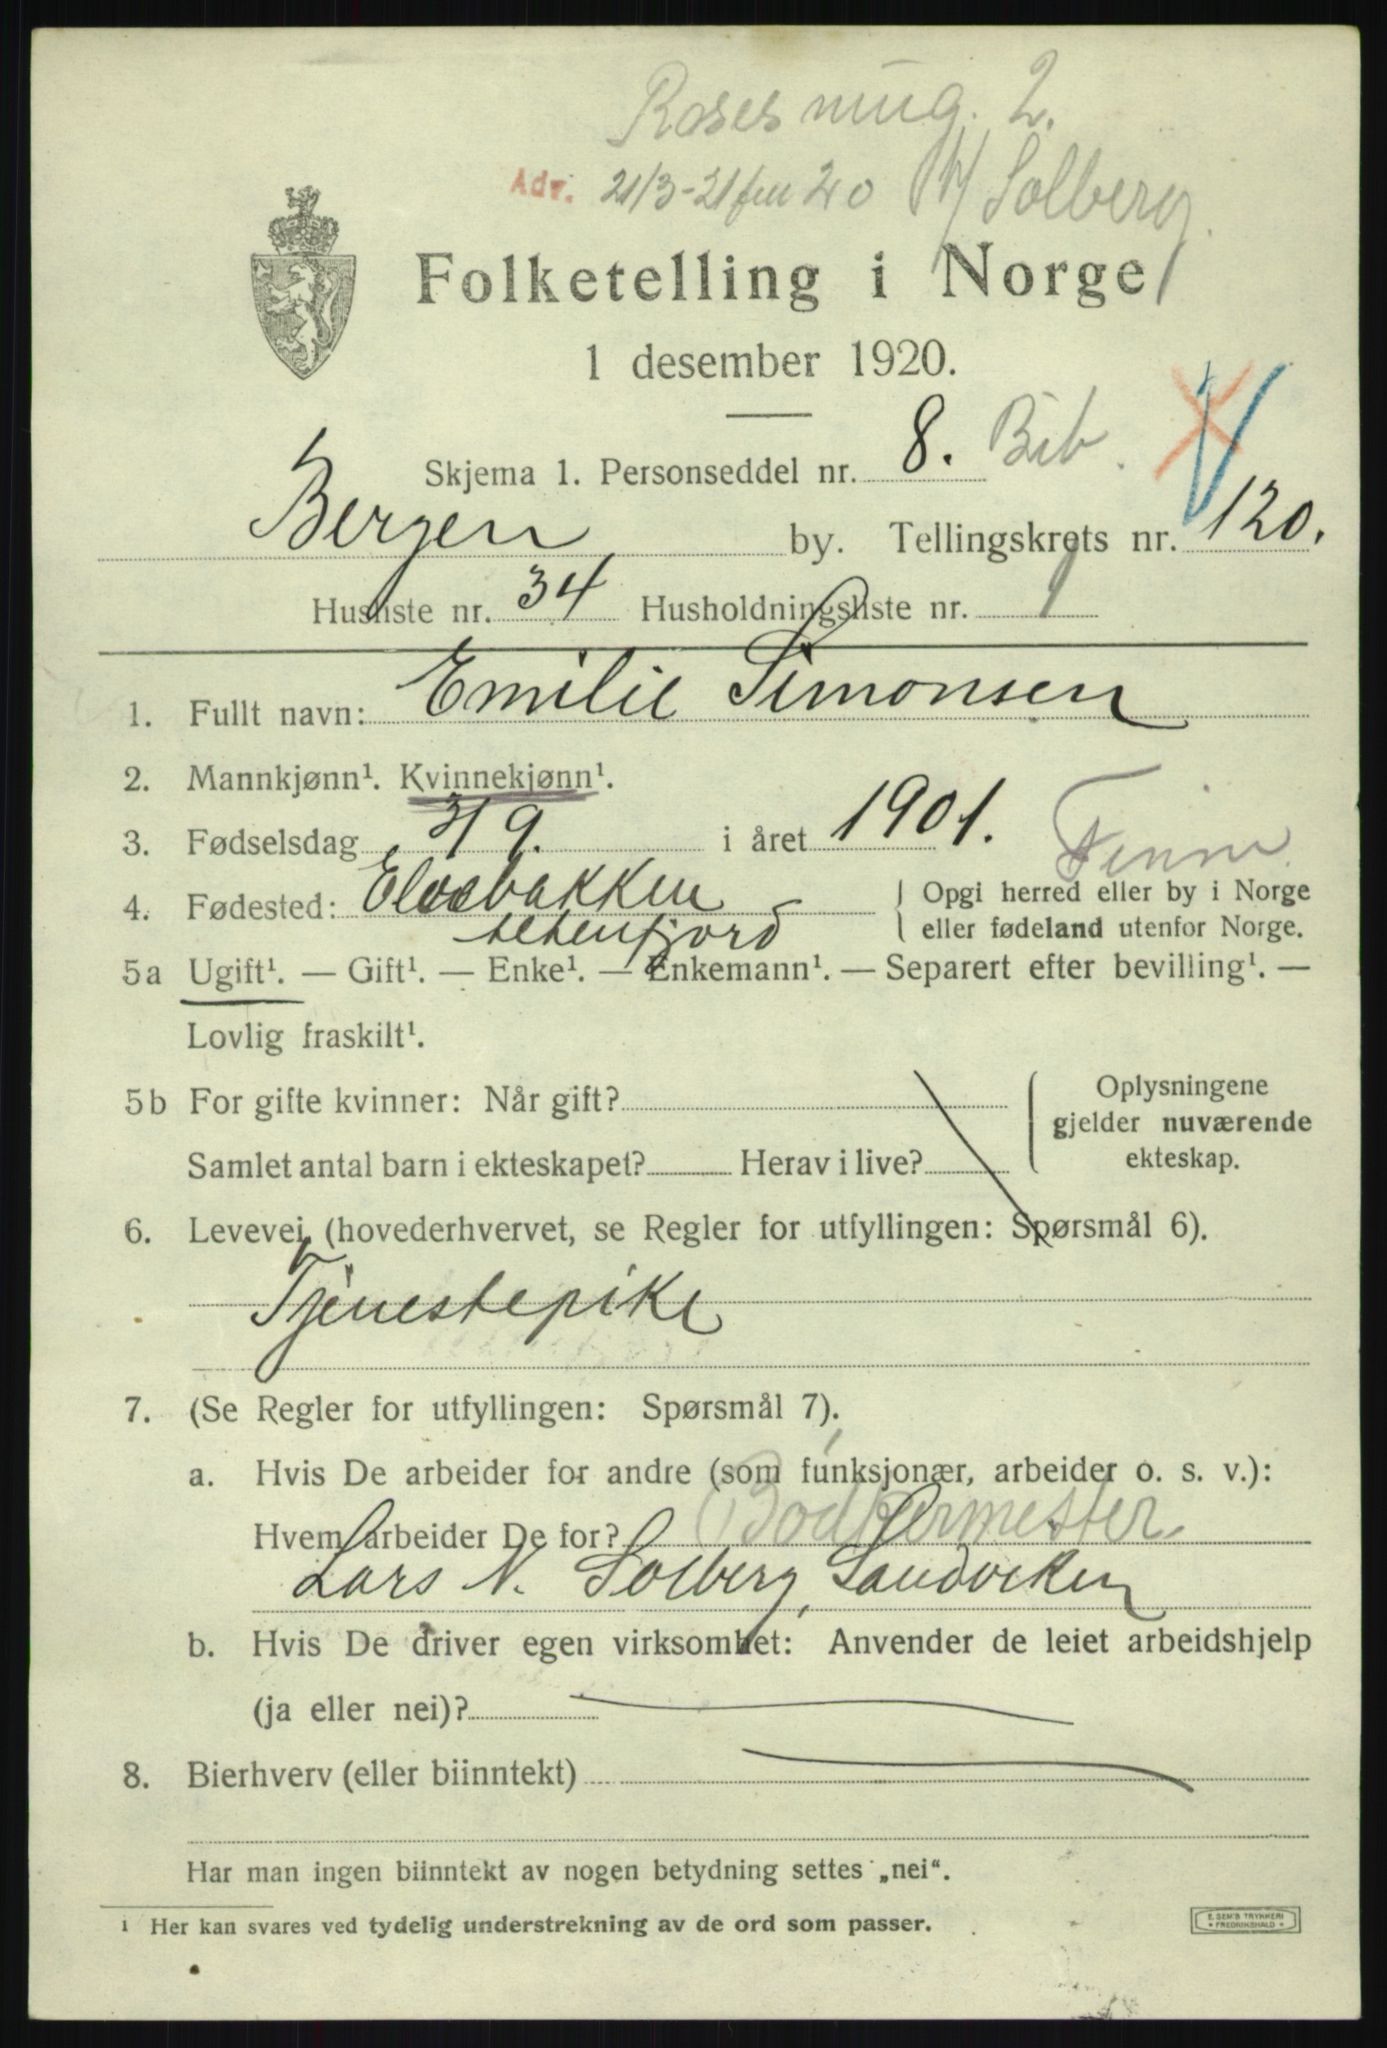 Roses mug. 2.
Adr. 21/3-21 20 Solberg.
Folketelling i Norge
1 desember 1920.
Skjema 1. Personseddel nr. 8. Bib.
Bergen by. Tellingskrets nr. 120.
Husliste nr. 34 Husholdningsliste nr. 1
1. Fullt navn: Emilie Simonsen
2. Mannkjønn¹. Kvinnekjønn¹.
3. Fødselsdag 3/9. i året 1901. Finne
4. Fødested: Elvebakken Altenfjord { Opgi herred eller by i Norge
eller fødeland utenfor Norge.
5a Ugift¹. — Gift¹. — Enke¹. — Enkemann¹. — Separert efter bevilling¹. —
Lovlig fraskilt¹.
5b For gifte kvinner: Når gift? Oplysningene
gjelder nuværende
Samlet antal barn i ekteskapet? Herav i live? ekteskap.
6. Levevei, (hovederhvervet, se Regler for utfyllingen: Spørsmål 6).
Tjenestepike
7. (Se Regler for utfyllingen: Spørsmål 7).
a. Hvis De arbeider for andre (som funksjonær, arbeider o. s. v.):
Hvem arbeider De for? (Bødkermester
Lars N. Solberg, Sandviken
b. Hvis De driver egen virksomhet: Anvender de leiet arbeidshjelp
(ja eller nei)?
8. Bierhverv (eller biinntekt)
Har man ingen biinntekt av nogen betydning settes „nei“.
¹ Her kan svares ved tydelig understrekning av de ord som passer.
E. SEM'S TRYKKERI
* FREDRIKSHALD *